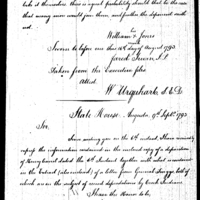 take it themselves there is equal probability should that be the case
that many more would join them, and further the depredat
William Jones
Sworn to before me this 16th day of August 1793
Jacob Swinn J.P.
Taken from the Executive files
Attest
W Urquhart S.E.D.
State House Augusta, 9th Septr. 1793
Sir,
Since writing you on the 6th instant, I have
the information contained in the inclosed copy of a deposition
of Henry dated the 6th Instant together with
an Extract (also inclosed) of a letter from General Twiggs both of
which are on the subject of recent depredations by Creek Indians
I have the Honor to be,